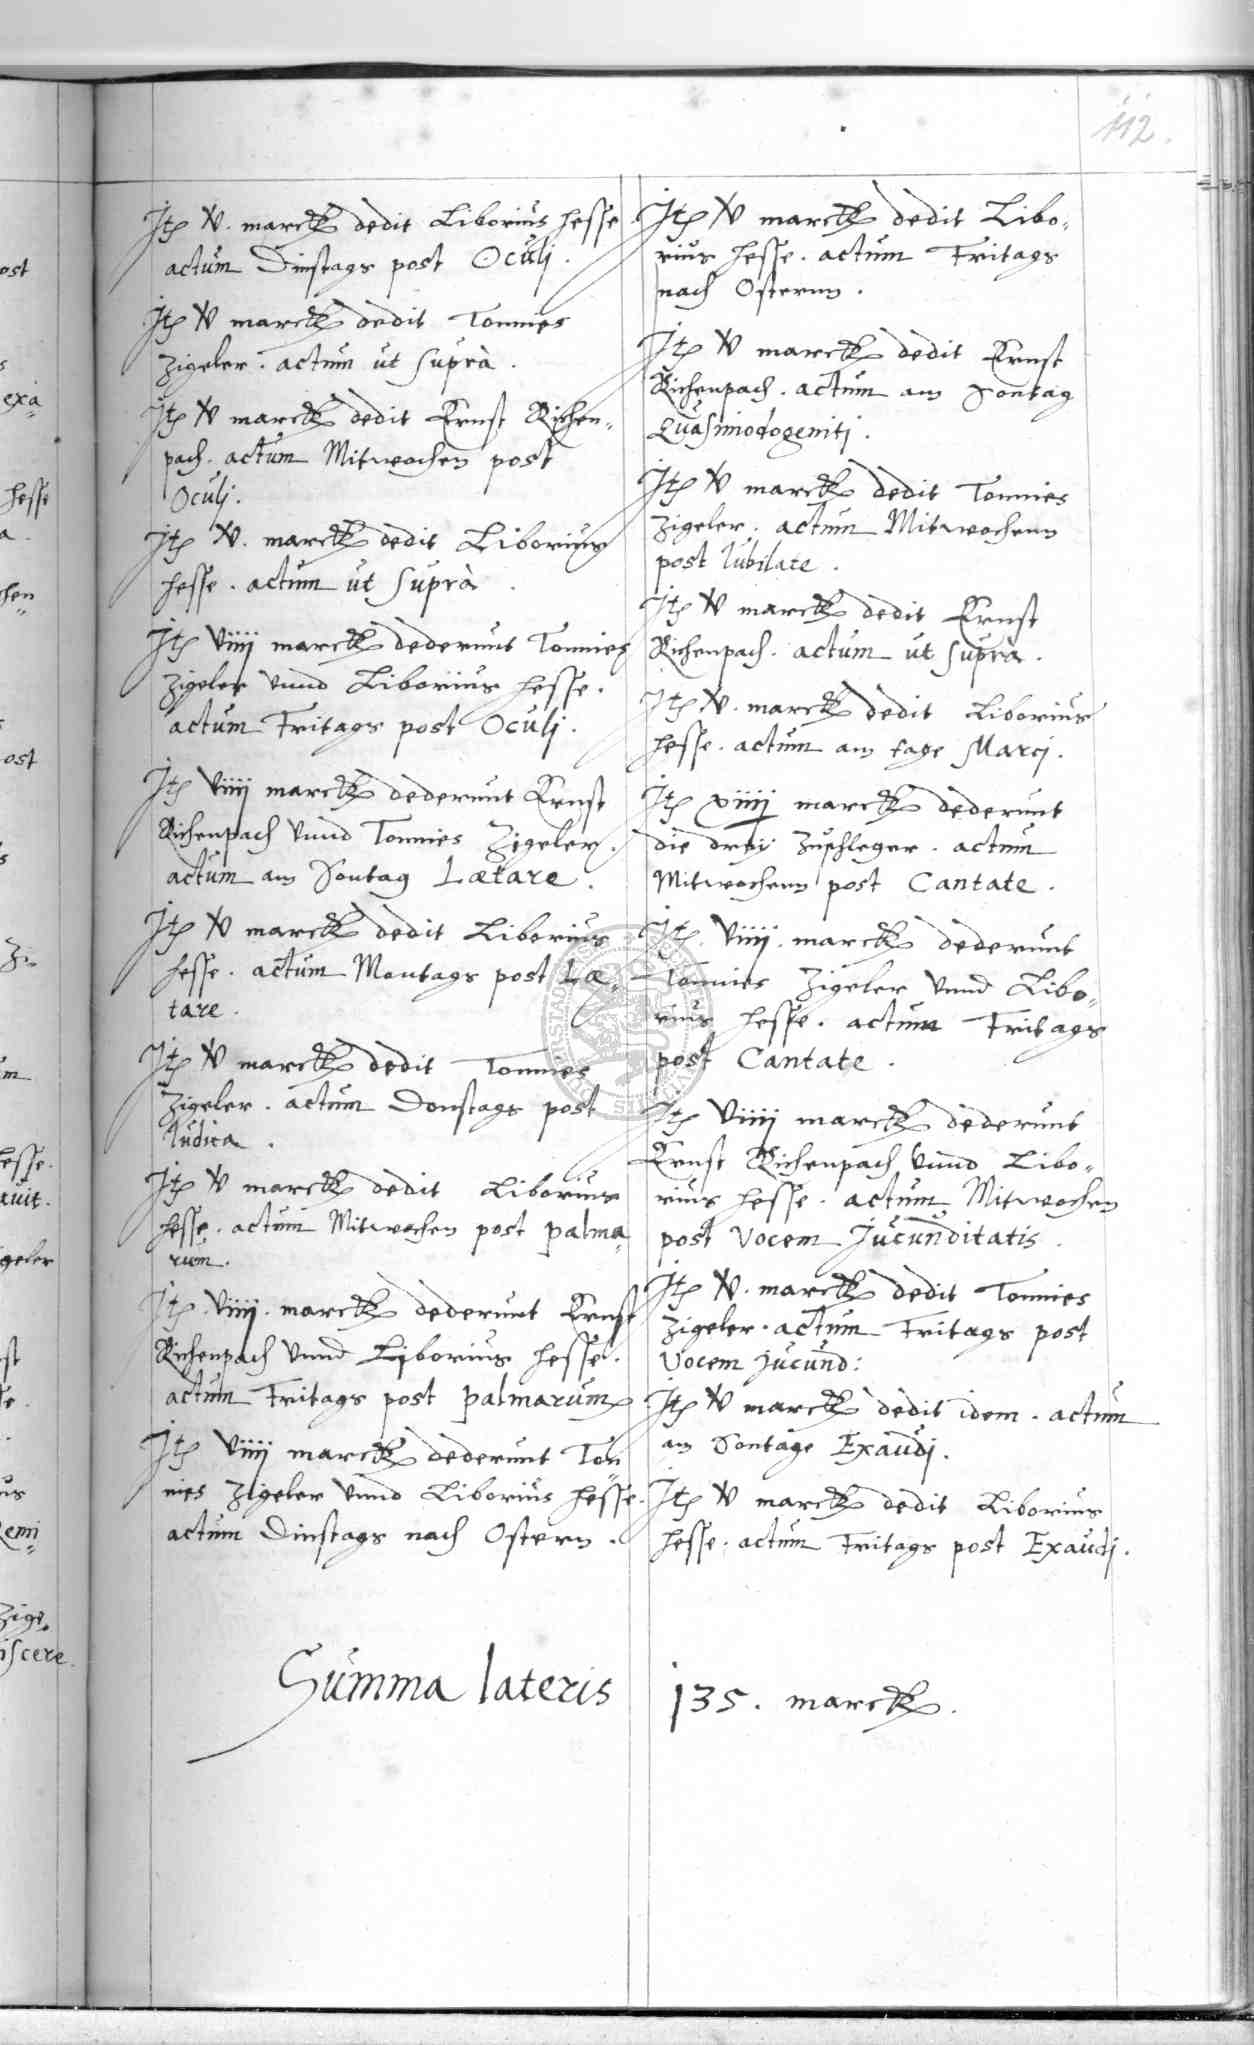 112.
Itē v̶. marck dedit Liborius Hesse
actum Dinstags post Oculj.
Itē v̶ marck dedit Tonnies
Zigeler. actum ut suprà.
Itē v̶ marck dedit Ernst Richen„
pach. actum Mitwochen post
Oculj.
Itē v̶. marck dedit Liborius
Hesse. actum ut suprà.
Itē viiij marck dederunt Tonnies
Zigeler vnnd Liborius Hesse.
actum Fritags post Oculj.
Itē viiij marck dederunt Ernst
Richenpach vnnd Tonnies Zigeler.
actum am Sontag Lætare.
Itē v̶ marck dedit Liborius
Hesse. actum Montags post Læ„
tare.
Itē v̶ marck dedit Tonnies
Zigeler. actum Donstags post
Iudica.
Itē v̶ marck dedit Liborius
Hesse. actum Mitwochen post palma„
rum.
Itē viiij. marck dederunt Ernst
Richenpach vnnd Liborius Hesse.
actum Fritags post palmarum
Itē viiij marck dederunt Ton„
nies Zigeler vnnd Liborius Hesse.
actum Dinstags nach Ostern.
Itē v̶ marck dedit Libo„
rius Hesse. actum Fritags
nach Osternn.
Itē v̶ marck dedit Ernst
Richenpach. actum am Sontag
Quasimodogeniti.
Itē v̶ marck dedit Tonnies
Zigeler. actum Mitwochenn
post Iubilate.
Itē v̶ marck dedit Ernst
Richenpach. actum ut suprà.
Itē v̶. marck dedit Liborius
Hesse. actum am tage Marcj.
Itē xiiij marck dederunt
die drey Zuschleger. actum
Mitwochenn post Cantate.
Itē. viiij. marck dederunt
Tonnies Zigeler vnnd Libo„
rius Hesse. actum Fritags
post Cantate.
Itē viiij marck dederunt
Ernst Richenpach vnnd Libo„
rius Hesse. actum Mitwochen
post Vocem Jucunditatis.
Itē v̶. marck dedit Tonnies
Zigeler. actum Fritags post
Vocem jucund:
Itē v̶ marck dedit idem. actum
am Sontage Exaudj.
Itē v̶ marck dedit Liborius
Hesse. actum Fritags post Exaudj.
Summa lateris 135. marck.